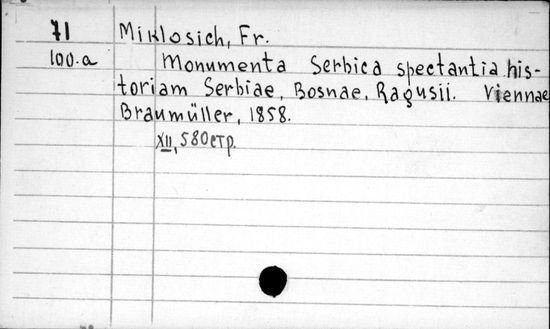 71 Miklosich, Fr.
100.a Monumenta Serbica spectantia his-
toriam Serbiae, Bosnae, Ragusii. Viennae
Braumüller, 1858.
XII, 580 стр.